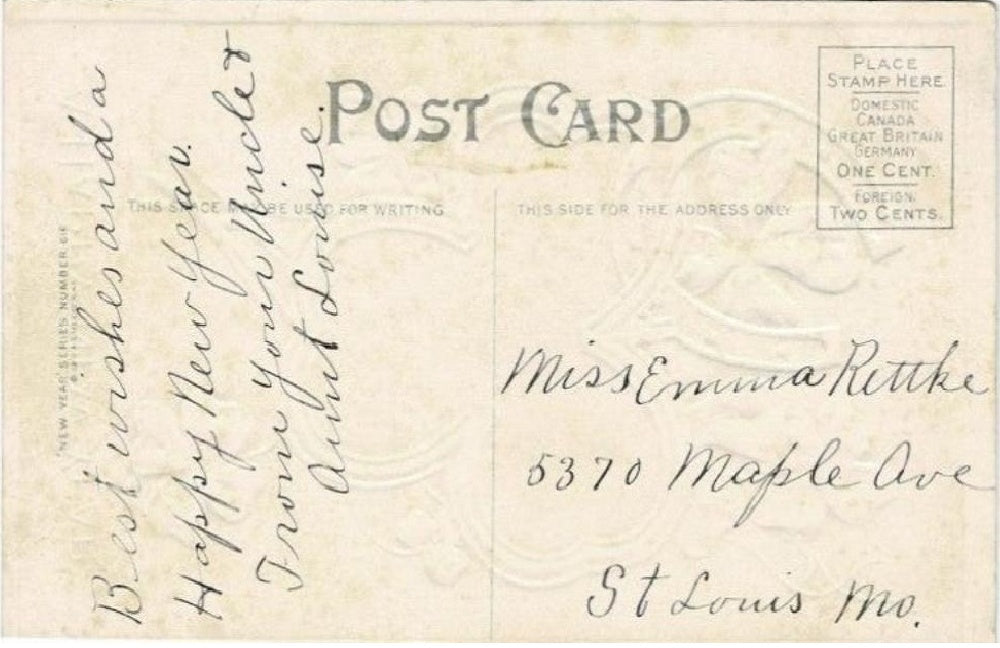 POST CARD
PLACE
STAMP HERE
DOMESTIC
CANADA
GREAT BRITAIN
GERMANY
ONE CENT.
FOREIGN,
TWO CENTS.
THIS SPACE MAY BE USED FOR WRITING
THIS SIDE FOR THE ADDRESS ONLY
NEW YEAR SERIES NUMBER
Best wishes and a
Happy New Year.
From your Uncle &
Aunt Louise.
Miss Emma Rettke
5370 Maple Ave
St Louis Mo.